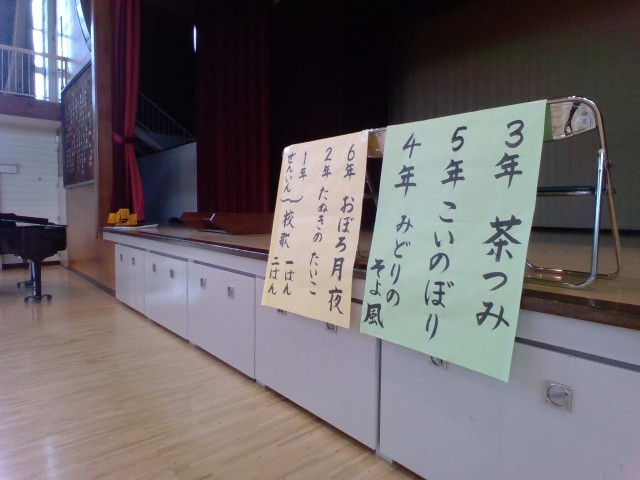 3年 茶つみ
5年 こいのぼり
4年 みどりの
そよ風
6年 おぼろ月夜
2年 たぬきの たいこ
1年
ぜんいん〜校歌 一ばん
二ばん